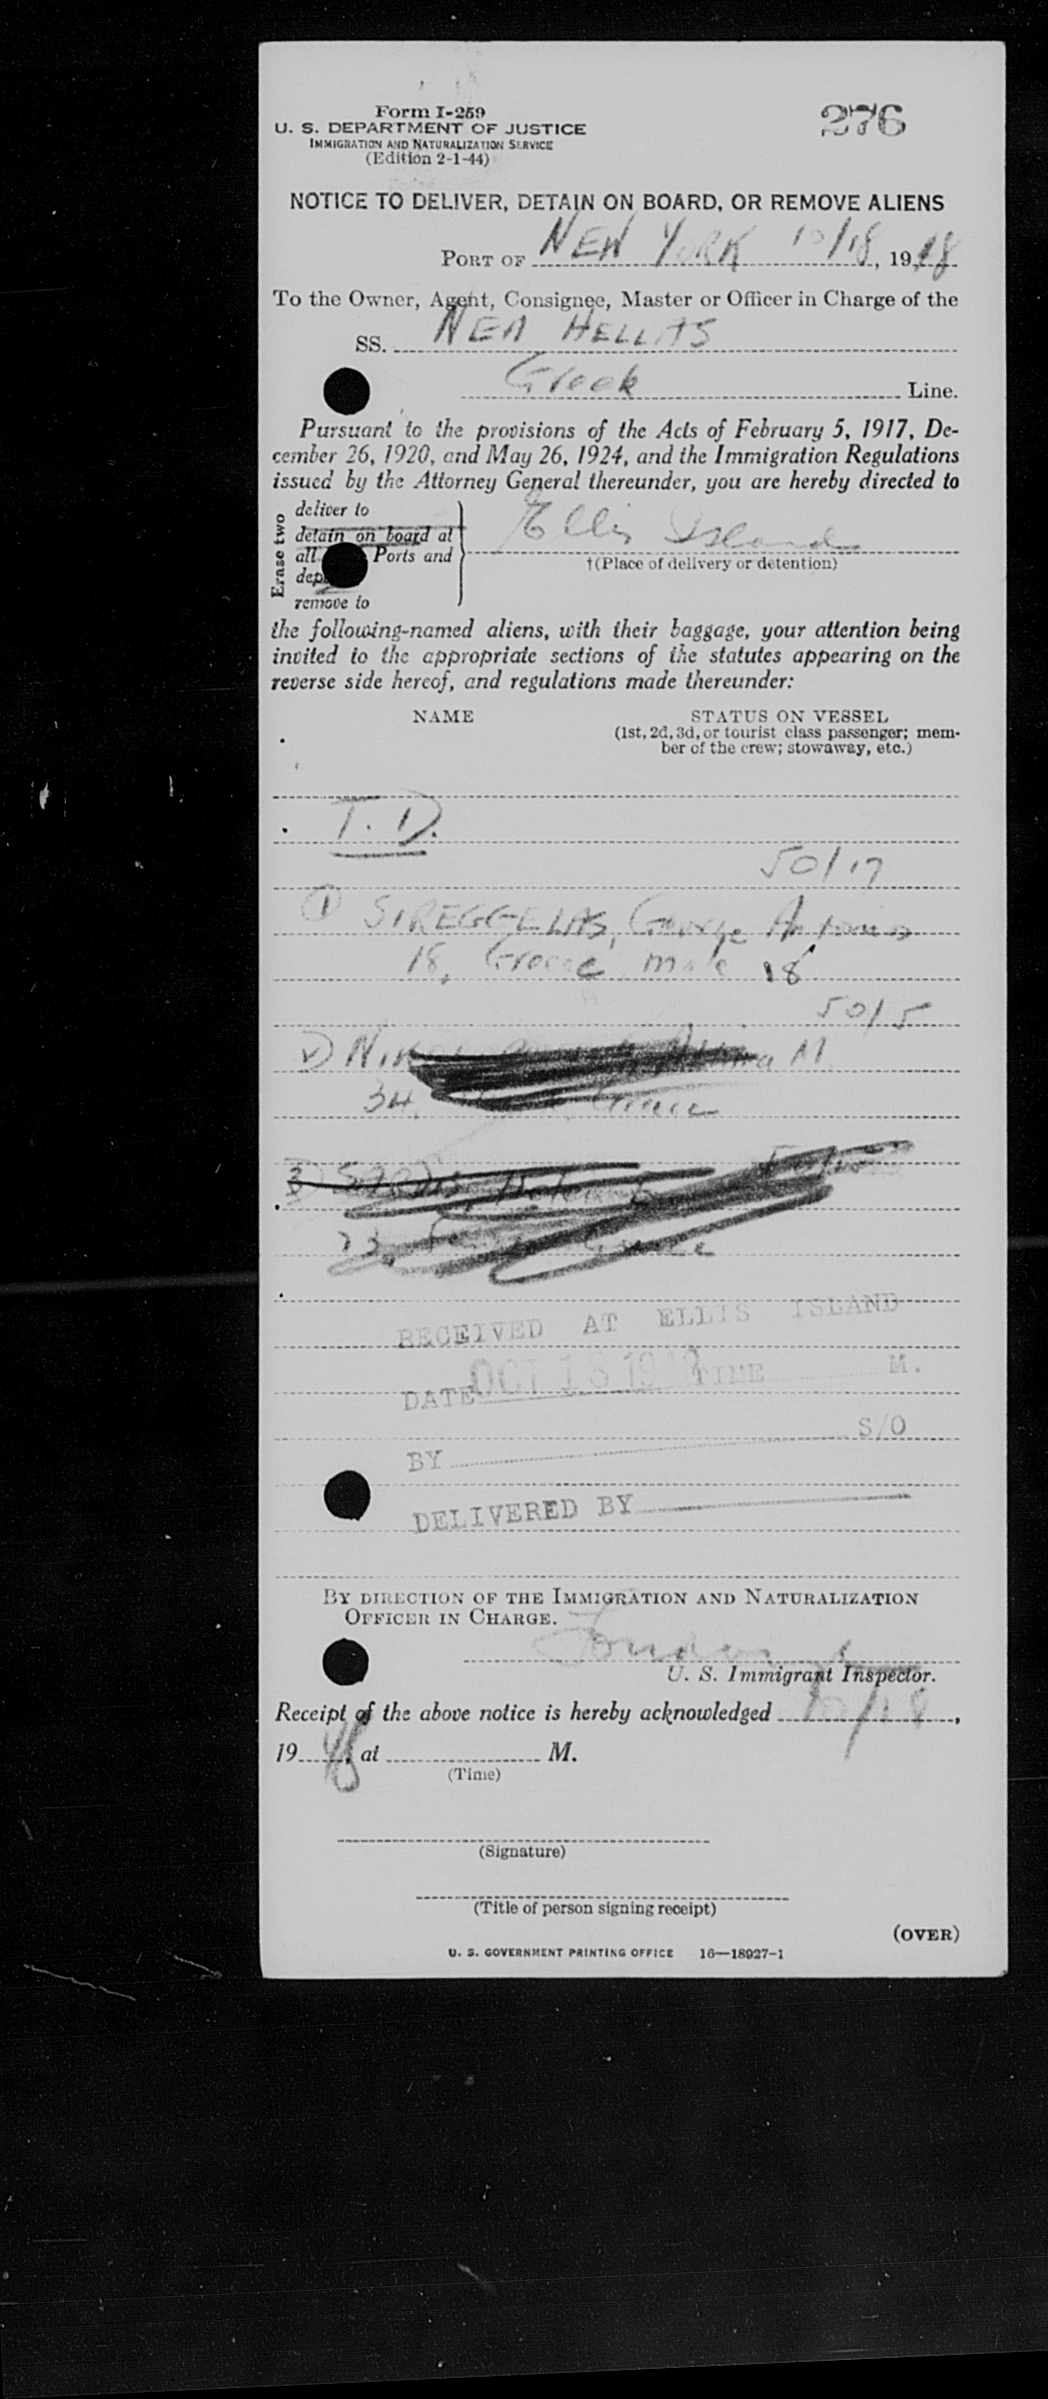 Form I-259
U. S. DEPARTMENT OF JUSTICE
IMMIGRATION AND NATURALIZATION SERVICE
(Edition 2-1-44)
276
NOTICE TO DELIVER, DETAIN ON BOARD, OR REMOVE ALIENS
PORT OF NEW YORK 10/18, 1948
To the Owner, Agent, Consignee, Master or Officer in Charge of the
SS. NEA HELLAS
Greek Line.
Pursuant to the provisions of the Acts of February 5, 1917, De-
cember 26, 1920, and May 26, 1924, and the Immigration Regulations
issued by the Attorney General thereunder, you are hereby directed to
Erase two
deliver to
detain on board at
all Ports and
remove to
Ellis Island
†(Place of delivery or detention)
the following-named aliens, with their baggage, your attention being
invited to the appropriate sections of the statutes appearing on the
reverse side hereof, and regulations made thereunder:
NAME
STATUS ON VESSEL
(1st, 2d, 3d, or tourist class passenger; mem-
ber of the crew; stowaway, etc.)
T. D.
50/17
① SIREGGELAS, George
18, Greece male 18
50/5
M
34, Greece
RECEIVED AT ELLIS ISLAND
DATE OCT 18 1948 TIME M.
BY S/O
DELIVERED BY
BY DIRECTION OF THE IMMIGRATION AND NATURALIZATION
OFFICER IN CHARGE.
U. S. Immigrant Inspector.
Receipt of the above notice is hereby acknowledged 10/18,
1948, at M.
(Time)
(Signature)
(Title of person signing receipt)
(OVER)
U. S. GOVERNMENT PRINTING OFFICE 16—18927-1